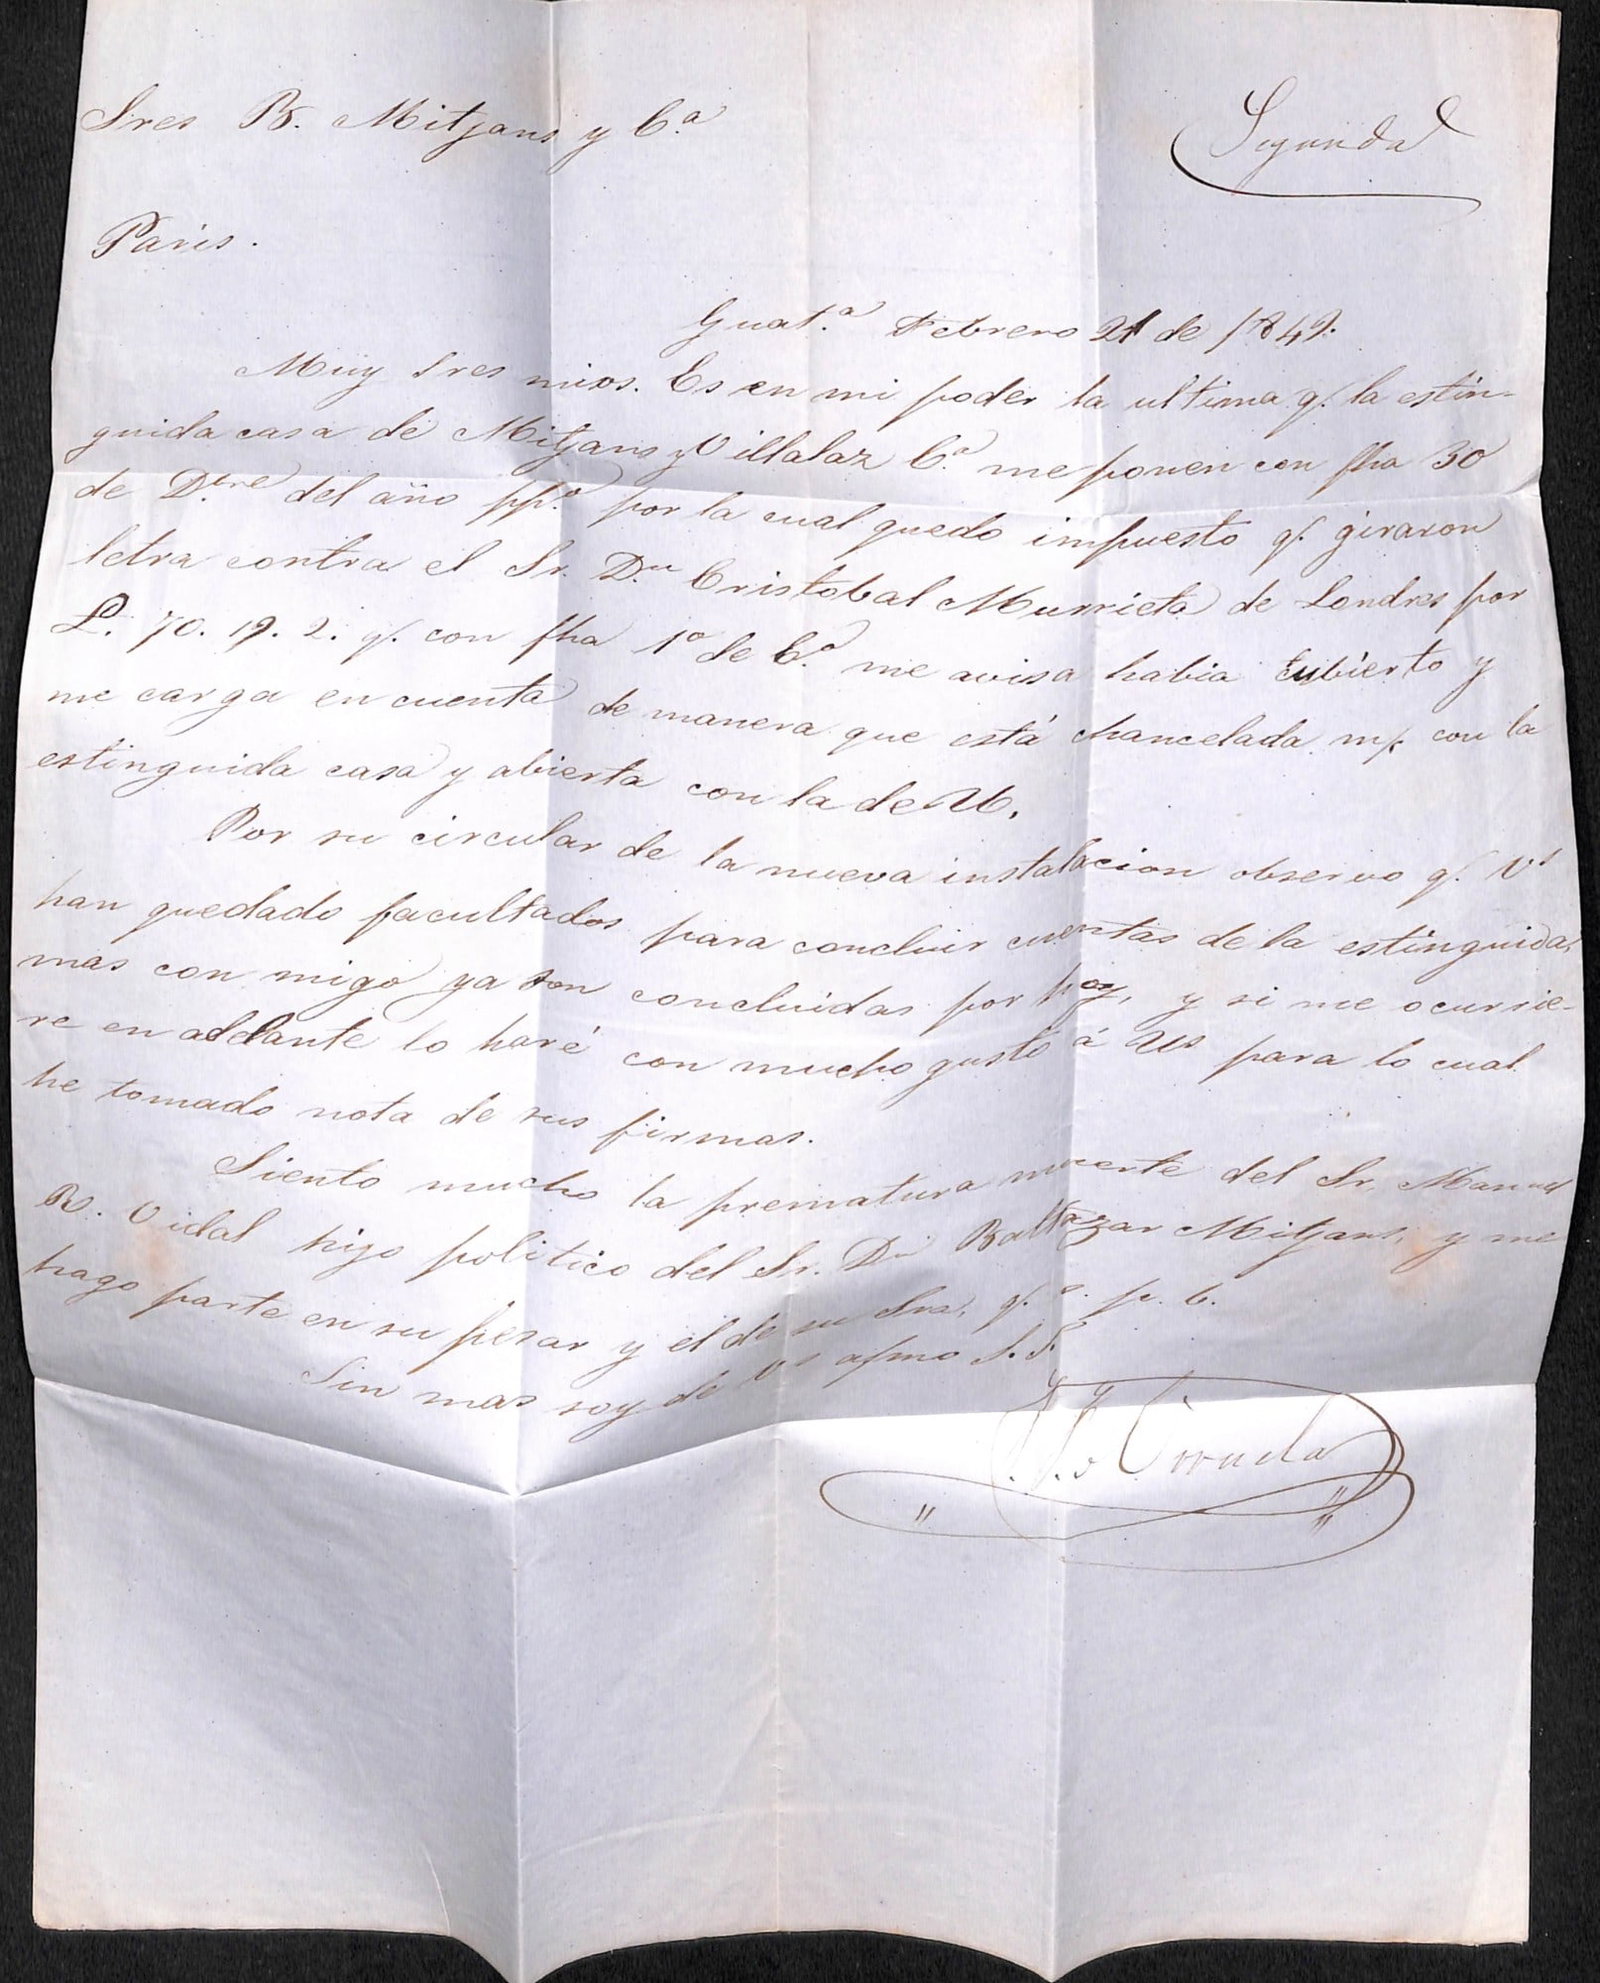 Sres B. Mitjans y C.ª
Segunda
Paris.
Guat.ª Febrero 21 de 1849.
Muy Sres mios. Es en mi poder la ultima q.e la estin-
guida casa de Mitjans y Villalaz C.ª me ponen con fha 30
de D.bre del año pp.º por la cual quedo impuesto q.e giraron
letra contra el Sr. D.n Cristobal Murrieta de Londres por
L. 70. 19. 2. q.e con fha 1º de E.º me avisa habia cubierto y
me carga en cuenta de manera que está chancelada m/c con la
estinguida casa y abierta con la de U.
Por su circular de la nueva instalacion observo q.e Vs
han quedado facultados para concluir cuentas de la estinguida,
mas con migo ya son concluidas por hoy, y si me ocurrie-
re en adelante lo haré con mucho gusto á Us para lo cual
he tomado nota de sus firmas.
Siento mucho la prematura muerte del Sr. Manuel
B. Vidal hijo politico del Sr. Dn Baltazar Mitjans, y me
hago parte en su pesar y el de su Sra, q.e s. p. b.
Sin mas soy de Vs afmo S. S.